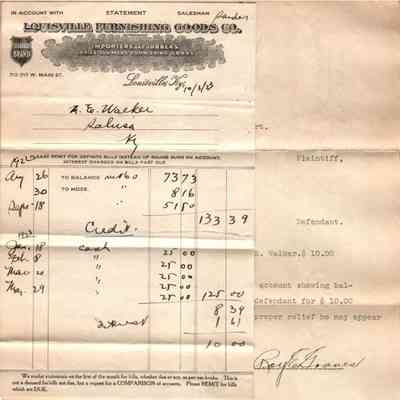 IN ACCOUNT WITH STATEMENT SALESMAN
LOUISVILLE FURNISHING GOODS CO.
BRAND
IMPORTERS & JOBBERS
W. MAIN ST.
Louisville, Ky. 10/2/23
Walker
Ky
PLEASE REMIT FOR DEFINITE BILLS INSTEAD OF ROUND SUMS ON ACCOUNT.
INTEREST CHARGED ON BILLS PAST DUE.
Aug 26 TO BALANCE 73 73
30 TO MDSE. 8 16
Sept 18 51 50
133 39
Credit.
1923
Jan. 18 Cash 25 00
Feb. 8 " 25 00
" 25 00
Mar 20 " 25 00
May 29 " 25 00 125 00
8 39
Interest 1 61
10 00
We mail statements on the first of the month for bills, whether due or not, as per our books. This is
not a demand for bills not due, but a request for a COMPARISON of accounts. Please REMIT for bills
which are DUE.
Plaintiff.
Defendant.
Walker. $ 10.00
account showing bal-
defendant for $ 10.00
proper relief he may appear